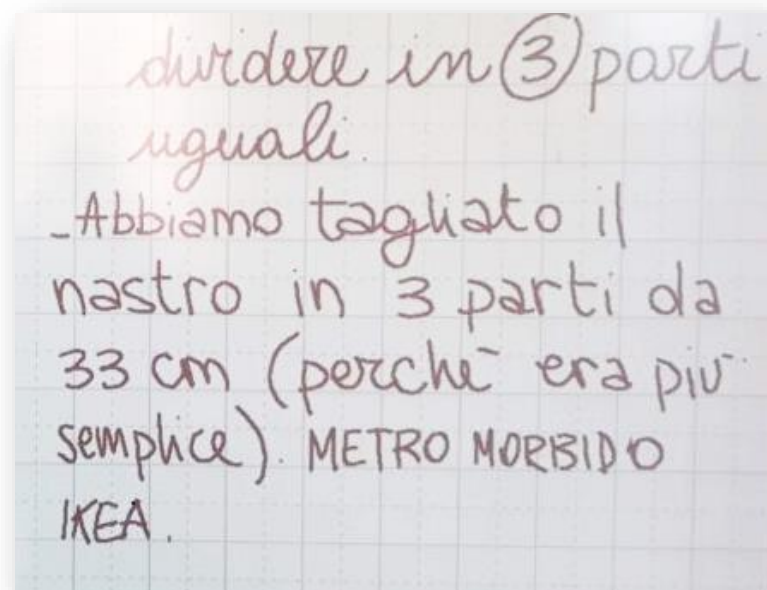 dividere in 3 parti
uguali.
- Abbiamo tagliato il
nastro in 3 parti da
33 cm (perchè era più
semplice). METRO MORBIDO
IKEA.